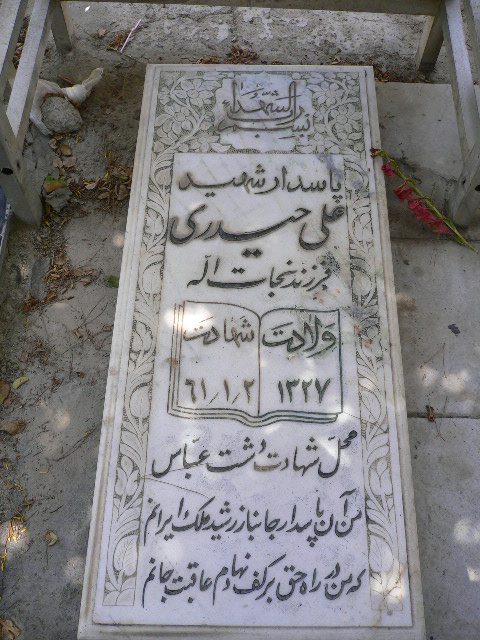 بسم رب الشهداء
پاسدار شهید
علی حیدری
فرزند نجات اله
ولادت شهادت
۱۳۲۷ ۶۱/۱/۲
محلّ شهادت دشت عبّاس
من آن پاسدار جانباز رشید ملک ایرانم
که من در راه حق بر کف نهادم عاقبت جانم